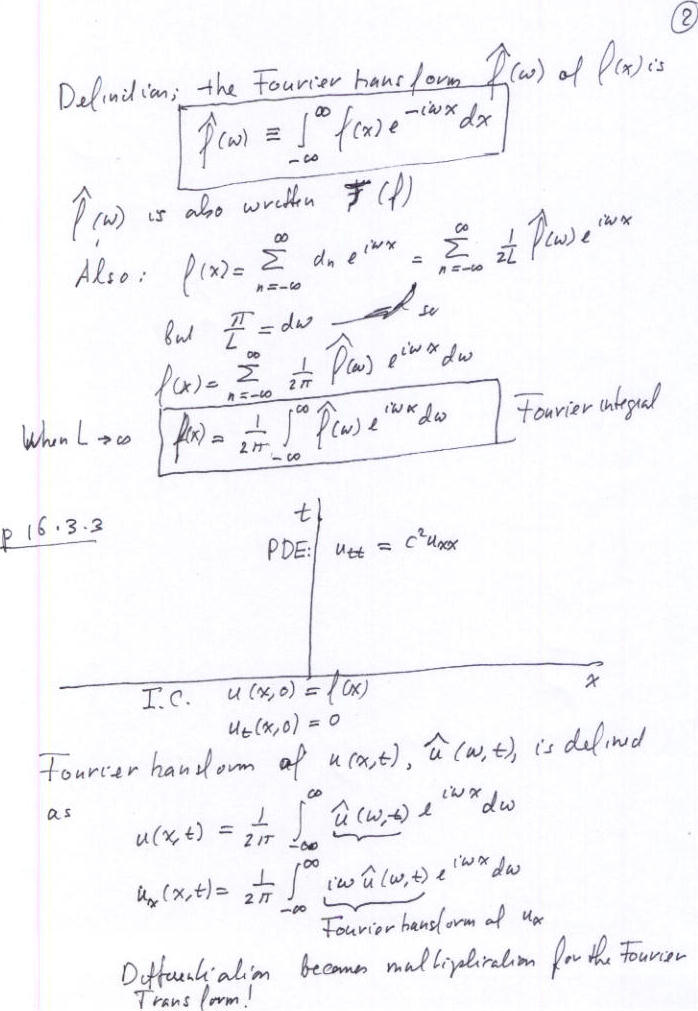 ②
Definition; the Fourier transform f̂(ω) of f(x) is
f̂(ω) ≡ ∫_{-∞}^{∞} f(x) e^{-iωx} dx
f̂(ω) is also written F(f)
Also: f(x) = Σ_{n=-∞}^{∞} dₙ e^{iωx} = Σ_{n=-∞}^{∞} 1/2L f̂(ω) e^{iωx}
But π/L = dω so
f(x) = Σ_{n=-∞}^{∞} 1/2π f̂(ω) e^{iωx} dω
When L → ∞ f(x) = 1/2π ∫_{-∞}^{∞} f̂(ω) e^{iωx} dω Fourier integral
p 16.3.3
t
PDE: u_{tt} = c² u_{xx}
x
I.C. u(x,0) = f(x)
u_t(x,0) = 0
Fourier transform of u(x,t), û(ω,t), is defined
as
u(x,t) = 1/2π ∫_{-∞}^{∞} û(ω,t) e^{iωx} dω
u_x(x,t) = 1/2π ∫_{-∞}^{∞} iω û(ω,t) e^{iωx} dω
Fourier transform of u_x
Differentiation becomes multiplication for the Fourier
Transform!